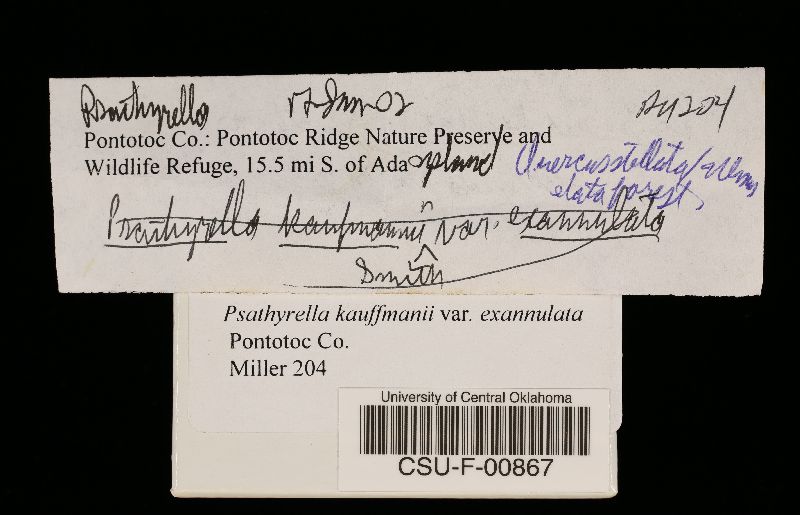 Psathyrella 17-Jun-02 204
Pontotoc Co.: Pontotoc Ridge Nature Preserve and
Wildlife Refuge, 15.5 mi S. of Ada upland Quercus stellata/Ulmus
alata forest,
Psathyrella kauffmanii var. exannulata
Smith
Psathyrella kauffmanii var. exannulata
Pontotoc Co.
Miller 204
University of Central Oklahoma
CSU-F-00867